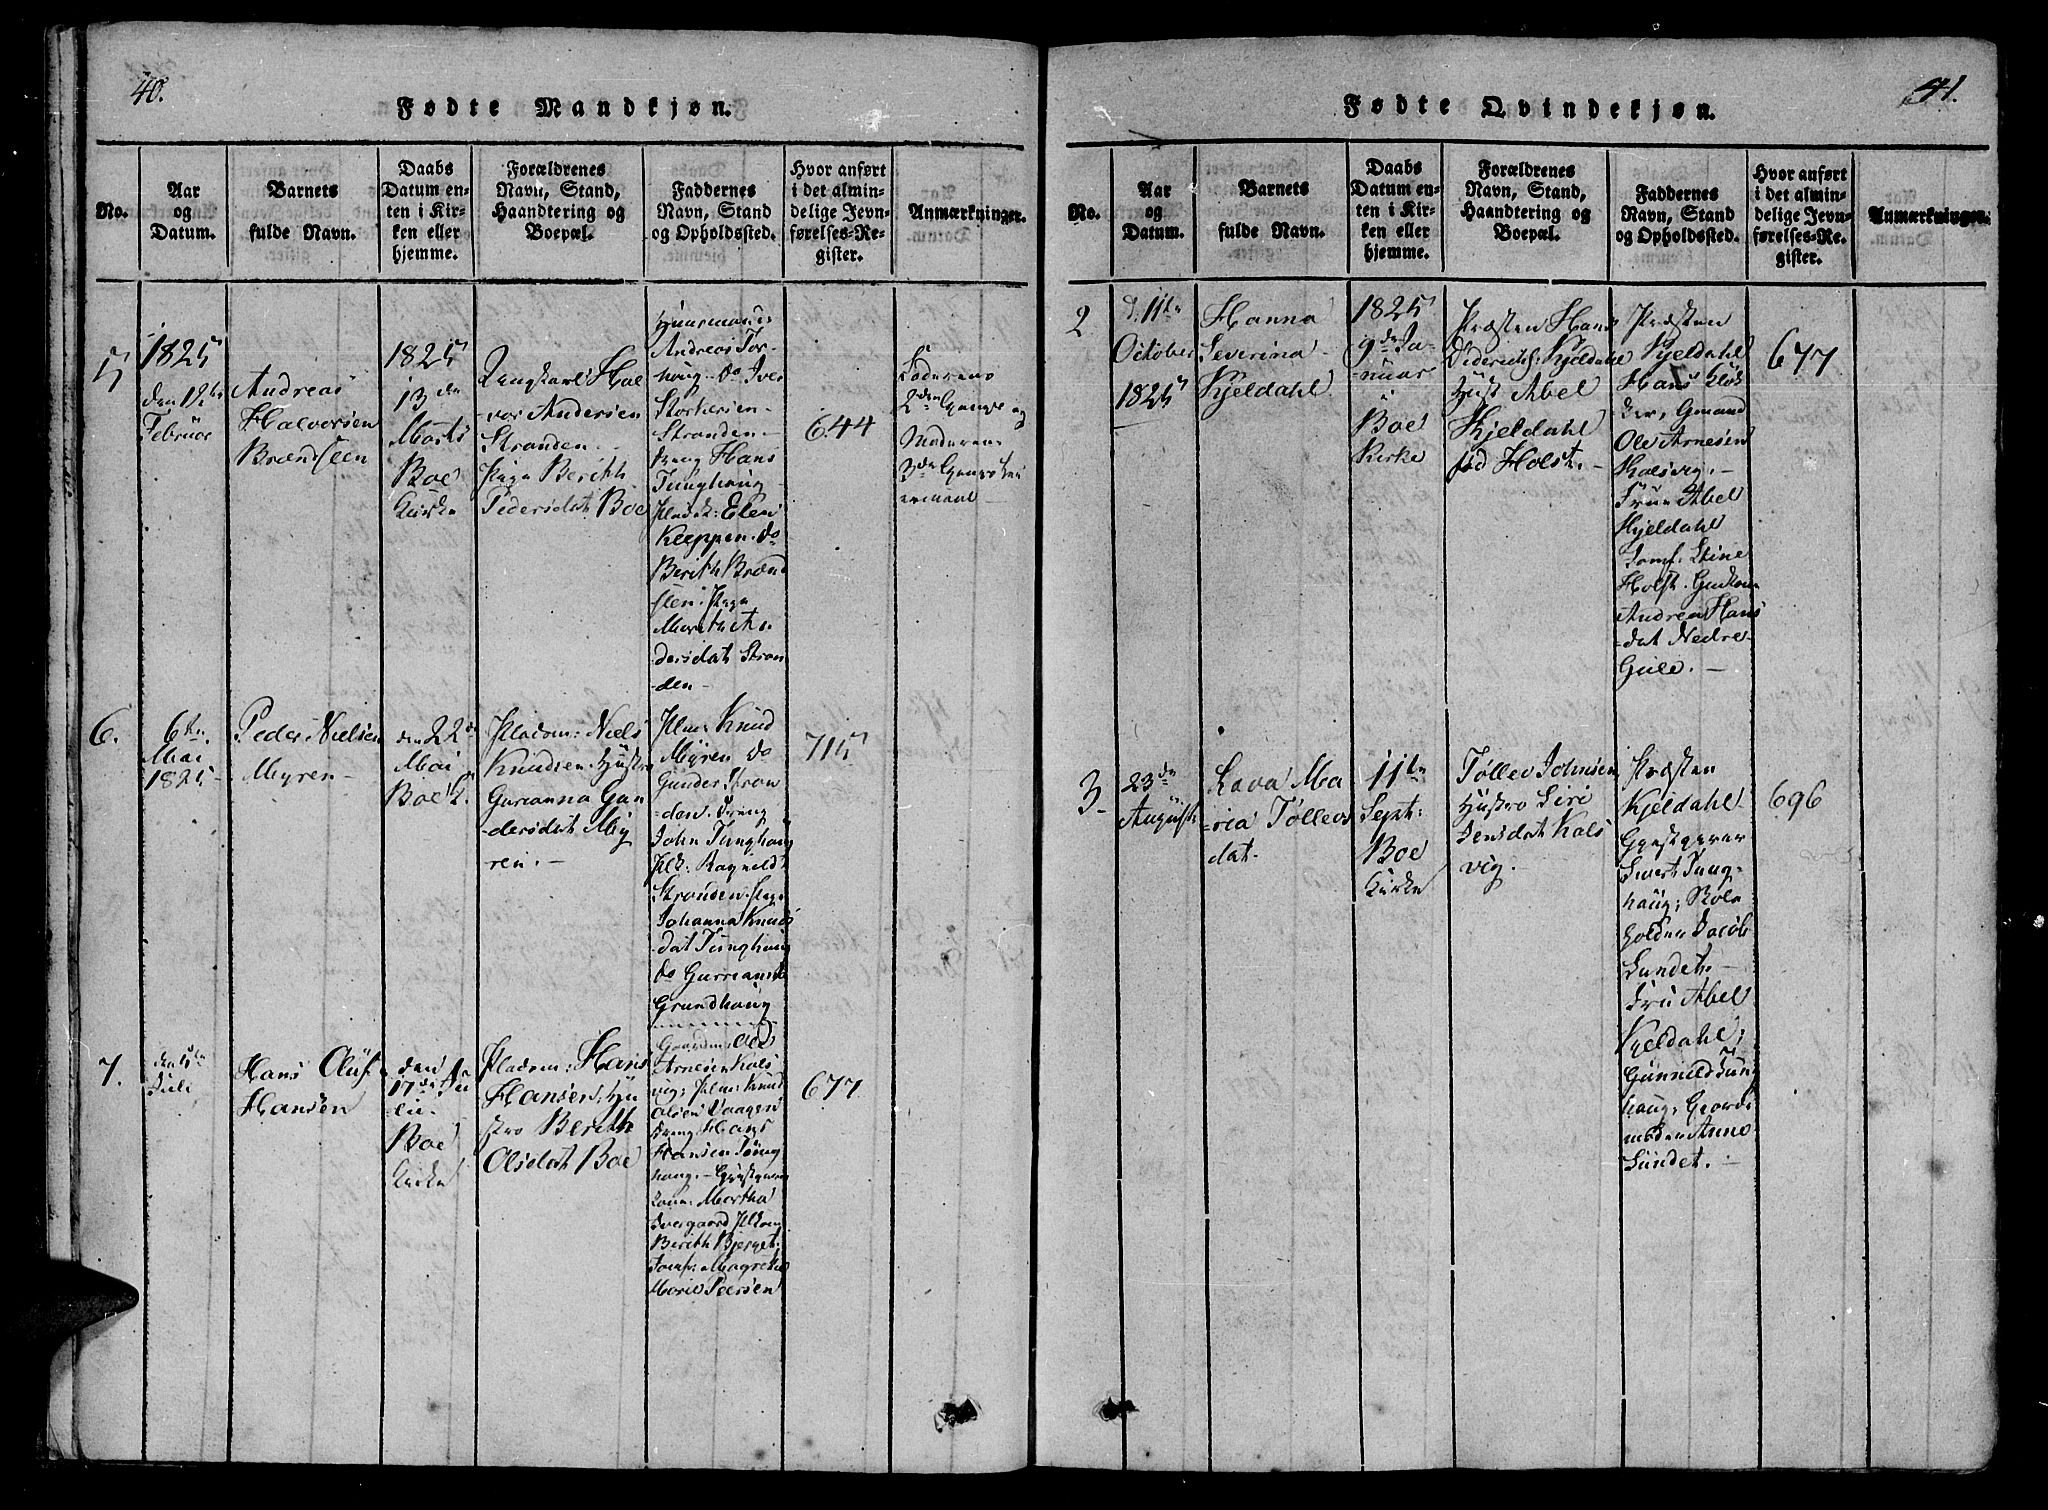 40.
Fødte Mandkjøn.
No.
Aar
og
Datum.
Barnets
fulde Navn.
Daabs
Datum en-
ten i Kir-
ken eller
hjemme.
Forældrenes
Navn, Stand,
Haandtering og
Boepæl.
Faddernes
Navn, Stand
og Opholdssted.
Hvor anført
i det almin-
delige Jevn-
førelses-Re-
gister.
Anmærkninger.
5
1825
den 12te
Februar
Andreas
Halvorsen
Brændsteen
1825
13den
Marts
Boe
Kirke
Ungkarl Hal
vor Andersen
Stranden
Pige Berith
Pedersdat Boe
Huusmand
Andreas Tor-
haug do Iver
Storkersen
Stranden
Dreng Hans
Tunghaug
Elen
Kleppen. do
Berith Brænd
steen. Pige
Marith An
dersdat Stran
den
644
Faderens
2den Gangs og
Moderens
3die Gangs
leiermaal
6.
6te
Mai
1825
Peder Nielsen
Myren
den 22de
Mai
Boe K.
Pladsm: Niels
Knudsen Hustro
Gurianna Gun
dersdat My
ren.
Plm: Knud
Myren do
Gunder Stran
den. Dreng
John Tunghaug
Plk: Ragnild
Stranden. Pige
Johanna Knuds
dat Tunghaug
do Gurrianna
Grundhaug
715
7.
den 5te
Juli
Hans Oluf
Hansen
den
17de Ju
lii
Boe
Kirke
Pladsm: Hans
Hansen; Hu
stro Berith
Olsdat Boe
Gaardm: Ole
Arnesen Kals
vig; Plm: Knud
Olsen Vaagen
Dreng Hans
Hansen Tung
haug. Gjestgiver
kone Martha
Ivergaard Plkone
Berith Bjerget.
Jomf: Magrethe
Marie Peersen
677
41.
Fødte Qvindekjøn.
No.
Aar
og
Datum.
Barnets
fulde Navn.
Daabs
Datum en-
ten i Kir-
ken eller
hjemme.
Forældrenes
Navn, Stand,
Haandtering og
Boepæl.
Faddernes
Navn, Stand
og Opholdssted.
Hvor anført
i det almin-
delige Jevn-
førelses-Re-
gister.
Anmærkninger.
2
d. 11te
October
1825
Hanna
Severina
Kjeldahl
1825
9de Ja-
nuar
i
Boe
Kirke
Præsten Hans
Diderich: Kjeldahl
Hust Abel
Kjeldahl
fød Holst.
Præsten
Kjeldahl
Hans Klok
ker, Gmand
Ole Arnesen
Kalsvig.
Frue Abel
Kjeldahl
Jomf: Stine
Holst. Gudkone
Andrea Hans
dat Nedre
Gule.
677
3
23de
August
Lava Ma
ria Tøllevs
dat.
11te
Sept:
Boe
Kirke
Tøllev Johnsen
Hustro Siri
Jensdat Kals
vig.
Præsten
Kjeldahl
Gjestgiver
Sivert Tung-
haug; Skole
holder Jacob
Sundet.
Fru Abel
Kjeldahl;
Gunnild Tung
haug; Gaard
manden Anne
Sundet.
696